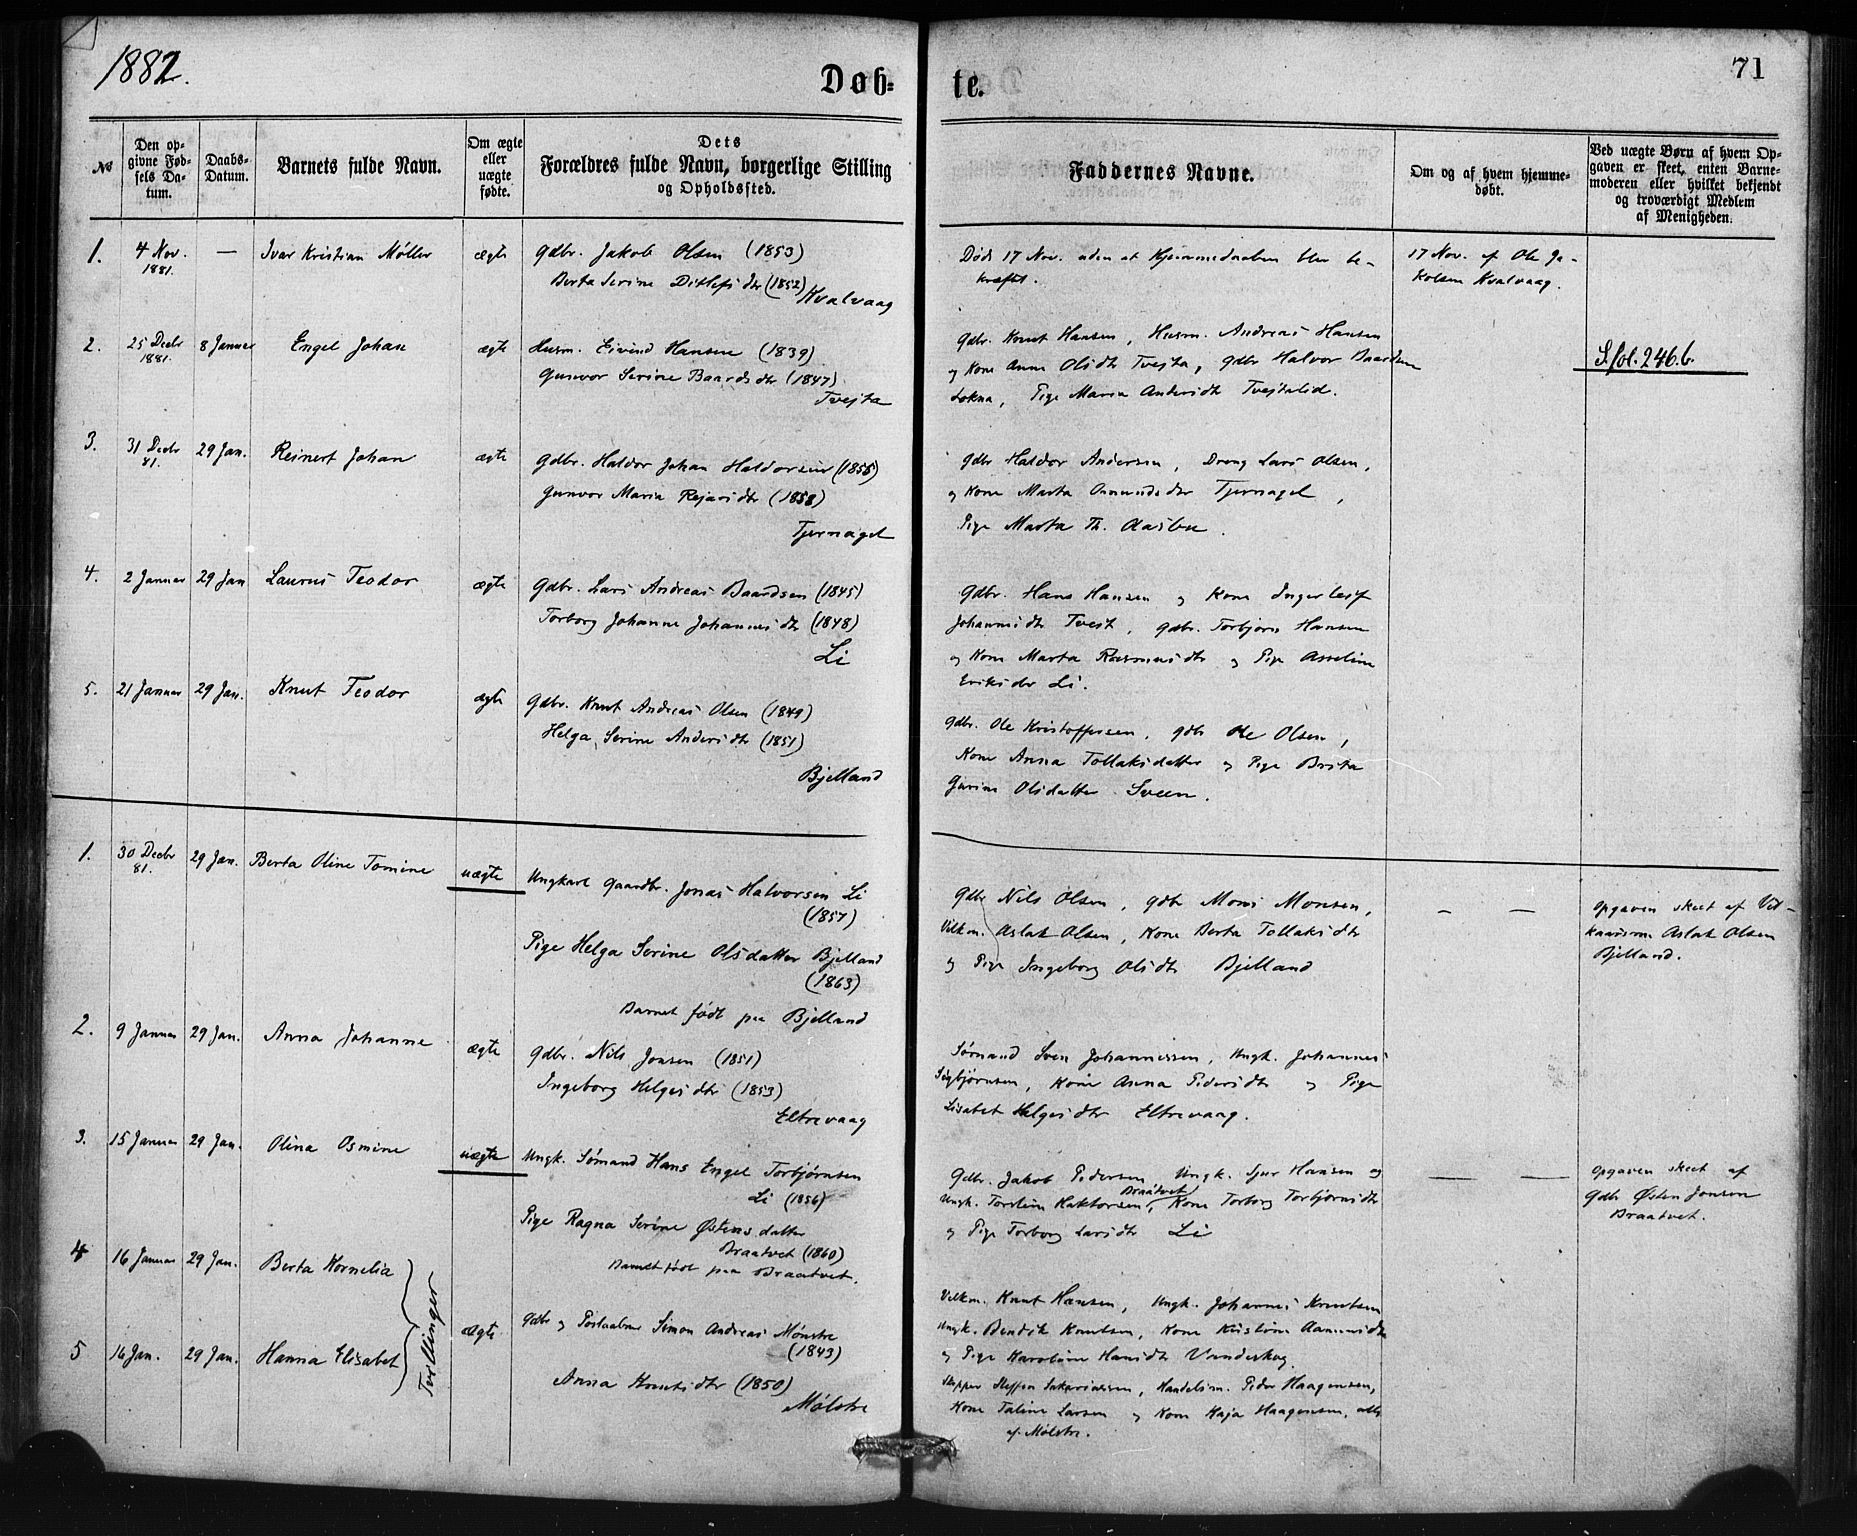 1882.
Døb-
te.
71
№
Den op-
givne Fød-
sels Da-
tum.
Daabs-
Datum.
Barnets fulde Navn.
Om ægte
eller
uægte
fødte.
Dets
Forældres fulde Navn, borgerlige Stilling
og Opholdssted.
Faddernes Navne.
Om og af hvem hjemme-
døbt.
Ved uægte Børn af hvem Op-
gaven er skeet, enten Barne-
moderen eller hvilket bekjendt
og troværdigt Medlem
af Menigheden.
1.
4 Nov.
1881.
—
Ivar Kristian Møller
ægte
Gdbr. Jakob Olsen (1853)
Berta Serine Ditlefsdtr (1852)
Kvalvaag
Døde 17 Nov. uden at Hjemmedaaben blev be-
kræftet.
17 Nov. af Ole Ja-
kobsen Kvalvaag.
2.
25 Decbr
1881.
8 Januar
Engel Johan
ægte
Husm. Eivind Hansen (1839)
Gunvor Serine Baardsdtr (1847)
Tvejta
Gdbr. Knut Hansen, Husm. Andreas Hansen
og Kone Anna Olsdtr Tvejta, Gdbr Halvor Baardsen
Løkna, Pige Maria Andersdtr Tvejtalid.
S. fol. 246.b.
3.
31 Decbr
81.
29 Jan.
Reinert Johan
ægte
Gdbr. Haldor Johan Haldorsen (1855)
Gunvor Maria Rejarsdtr (1858)
Tjernagel
Gdbr Haldor Andersen, Dreng Lars Olsen,
og Kone Marta Amundsdtr Tjernagel,
Pige Marta Th. Aasbu.
4.
2 Januar
29 Jan
Laurus Teodor
ægte
Gdbr. Lars Andreas Baardsen (1845)
Torborg Johanne Johannesdtr (1848)
Li
Gdbr. Hans Hansen og Kone Ingerleif
Johannesdtr Tvejt, Gdbr. Torbjørn Hansen
og Kone Marta Rasmusdtr og Pige Asseline
Eriksdtr Li.
5.
21 Januar
29 Jan.
Knut Teodor
ægte
Gdbr. Knut Andreas Olsen (1849)
Helga Serine Andersdtr (1851)
Bjelland
Gdbr. Ole Kristoffersen, Gdbr Ole Olsen,
Kone Anna Tollaksdatter og Pige Brita
Gurine Olsdatter Sveen.
1.
30 Decbr
81.
29 Jan.
Berta Oline Tomine
uægte
Ungkarl Gaardbr. Jonas Halvorsen Li
(1857)
Pige Helga Serine Olsdatter Bjelland
(1863)
Barnet født paa Bjelland
Gdbr Nils Olsen, Gdbr Mons Monsen,
Vilkm. Aslak Olsen, Kone Berta Tollaksdtr
og Pige Ingeborg Olsdtr Bjelland
— —
Opgaven skeet af Vil-
kaarsm. Aslak Olsen
Bjelland.
2.
9 Januar
29 Jan.
Anna Johanne
ægte
Gdbr. Nils Jonsen (1851)
Ingeborg Helgesdtr (1853)
Eltrevaag
Sømand Sven Johannessen, Ungk. Johannes
Sigbjørnsen, Kone Anna Pedersdtr og Pige
Lisabet Helgesdtr Eltrevaag.
3.
15 Januar
29 Jan.
Olina Osmine
uægte
Ungk. Sømand Hans Engel Torbjørnsen
Li (1856)
Pige Ragna Serine Østensdatter
Braatvet (1860)
Barnet født paa Braatvet.
Gdbr. Jakob Pedersen, Ungk. Sjur Hansen og
Ungk. Torstein Haktorsen Braatvet, Kone Torborg Torbjørnsdtr
og Pige Torborg Larsdtr Li
— —
Opgaven skeet af
Gdbr Østen Jonsen
Braatvet.
4
16 Januar
29 Jan.
Berta Kornelia
Tvillinger
ægte
Gdbr og Postaabner Simon Andreas Mønstre
(1843)
Anna Knutsdtr (1850)
Mølstre
Vilkm. Knut Hansen, Ungk. Johannes Knutsen
Ungk. Bendik Knutsen, Kone Kristine Aamundsdtr
og Pige Karoline Hansdtr Vandeskog.
5
16 Jan.
29 Jan.
Hanna Elisabet
Skipper Steffen Sakariassen, Handelsm. Peder Haagensen,
Kone Taline Larsen og Kone Kaja Haagensen, alle
af Mølstre.